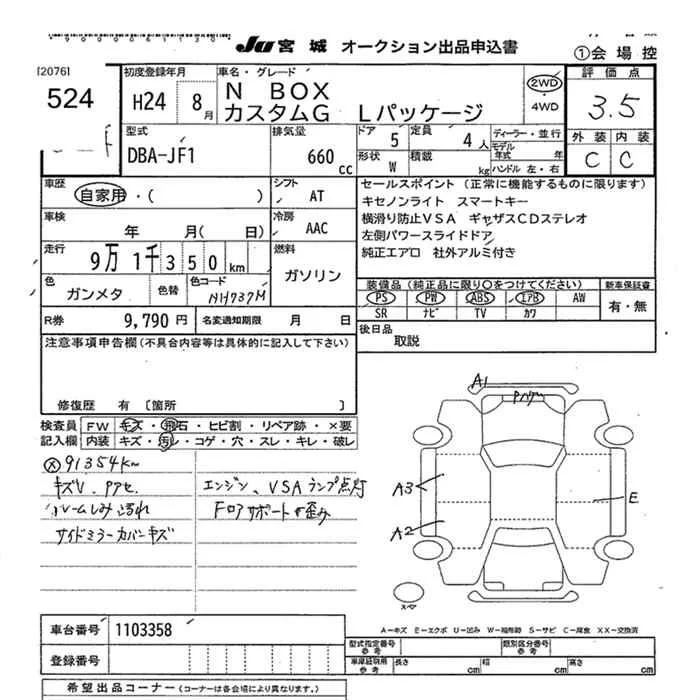 JU 宮城 オークション出品申込書
①会場控
[2076]
524
初度登録年月
H24 8月
車名・グレード
N BOX
カスタムG Lパッケージ
2WD
4WD
評価点
3.5
外装 内装
C C
型式
DBA-JF1
排気量
660 cc
ドア 5
定員 4人
形状 W
積載 kg
ディーラー・並行
モデル年式 年
ハンドル 左・右
車歴
自家用・( )
シフト
AT
車検
年 月( 日)
冷房
AAC
走行
9万1千350km
燃料
ガソリン
色
ガンメタ
色替
色コード
NH737M
R券 9,790円
名変通知期限 月 日
セールスポイント (正常に機能するものに限ります)
キセノンライト スマートキー
横滑り防止VSA ギャザズCDステレオ
左側パワースライドドア
純正エアロ 社外アルミ付き
装備品 (純正品に限り○をつけてください)
PS PW ABS エアB AW
SR ナビ TV カワ
新車保証書
有・無
後日品
取説
注意事項申告欄(不具合内容等は具体的に記入して下さい)
修復歴 有 〔箇所 〕
検査員記入欄
FW キズ・飛石・ヒビ割・リペア跡・×要
内装 キズ・汚レ・コゲ・穴・スレ・キレ・破レ
91354km
キズU、Pアセ
ルームしみ汚れ
サイドミラーカバーキズ
エンジン、VSAランプ点灯
Fロアサポート歪み
A1
A3
A2
E
A−キズ E−エクボ U−凹み W−補修跡 S−サビ C−腐食 XX−交換済
車台番号 1103358
登録番号
型式指定番号 参考
類別区分番号 参考
車庫証明用 参考
長さ cm 幅 cm 高さ cm
希望出品コーナー (コーナーは各会場により異なります。)